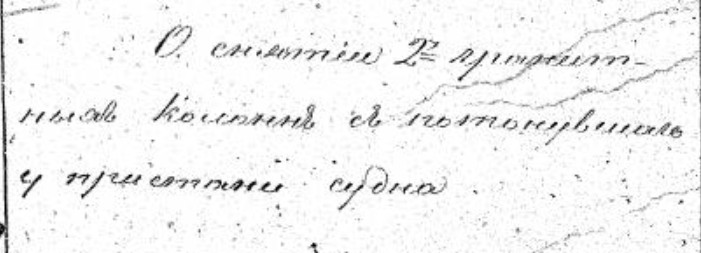 О снятіи 2х гранит-
ныхъ колоннъ съ потонувшаго
у пристани судна.